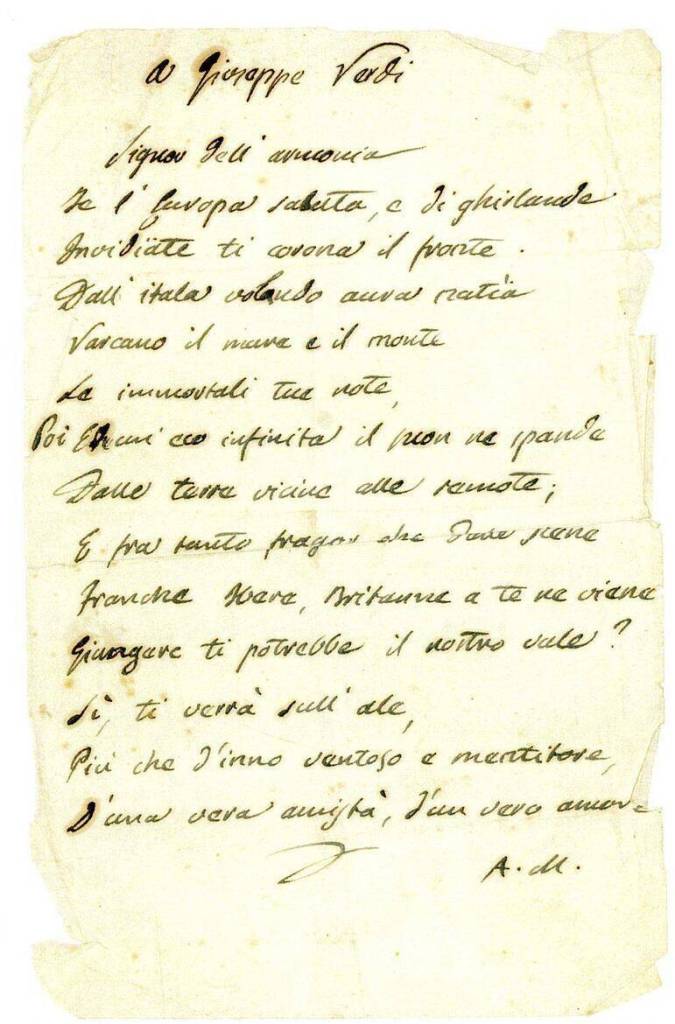 A Giuseppe Verdi
Signor dell' armonia
Se l' Europa saluta, e di ghirlande
Invidïate ti corona il fronte.
Dall' itala volando aura natìa
Varcano il mare e il monte
Le immortali tue note,
Poi eco infinita il suon ne spande
Dalle terre vicine alle remote;
E fra tanto fragor che dalle scene
Franche Ibere, Britanne a te ne viene
Giungere ti potrebbe il nostro vale?
Sì, ti verrà sull' ale,
Più che d'inno ventoso e mentitore,
D'una vera amistà, d'un vero amore
A. M.